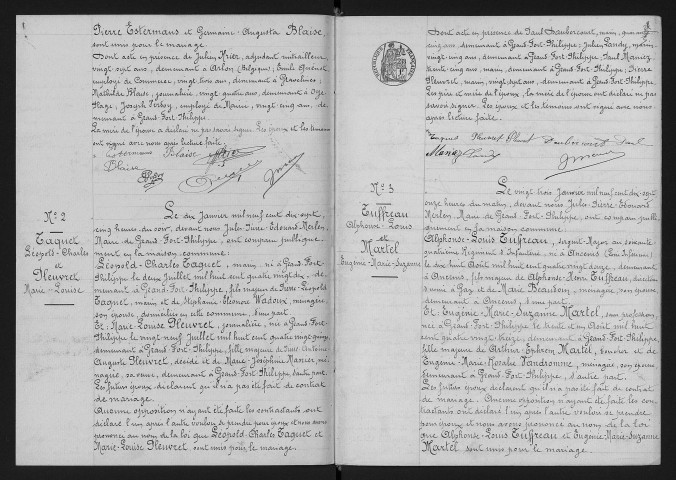 Pierre Estermans et Germaine-Augusta Blaise
sont unis pour le mariage.
Dont acte en présence de Julien Krier, adjudant mitrailleur,
vingt-sept ans, demeurant à Arlon (Belgique), Emile
employé de Commerce, vingt-trois ans, demeurant à
Mathilde Blaise, journalière, vingt-quatre ans, demeurant à
Plage, Joseph employé de Mairie, vingt-cinq ans, de-
meurant à Grand-Fort-Philippe.
La mère de l'épouse a déclaré ne pas savoir signer. Les époux et les témoins
ont signé avec nous après lecture faite.
Estermans Blaise
Blaise
No 2
Taquet
Léopold-Charles
et
Fleuvret
Marie-Louise
Le dix Janvier mil neuf cent dix-sept,
cinq heures du soir, devant nous Jules-Pierre-Edouard Merlen,
Maire de Grand-Fort-Philippe, ont comparu publique-
ment en la maison commune:
Léopold-Charles Taquet, marin, né à Grand-Fort-
Philippe le deux Juillet mil huit cent quatre vingt dix, de-
meurant à Grand-Fort-Philippe, fils majeur de Pierre-Léopold
Taquet, marin et de Stéphanie-Eléonore Wadoux, ménagère,
son épouse, domiciliés en cette commune, d'une part.
Et, Marie-Louise Fleuvret, journalière, née à Grand-Fort-
Philippe le vingt-neuf Juillet mil huit cent quatre vingt-quinze,
demeurant à Grand-Fort-Philippe, fille majeure de Antoine-
Auguste Fleuvret, décédé et de Marie-Joséphine Manier, mé-
nagère, sa veuve, demeurant à Grand-Fort-Philippe, d'autre part.
Les futurs époux déclarent qu'il n'a pas été fait de contrat
de mariage.
Aucune opposition n'ayant été faite les contractants ont
déclaré l'un après l'autre vouloir se prendre pour époux et nous avons
prononcé au nom de la loi que Léopold-Charles Taquet et
Marie-Louise Fleuvret sont unis pour le mariage.
Dont acte en présence de Paul Haubercourt, marin, quarante
cinq ans, demeurant à Grand-Fort-Philippe; Julien Landy, marin,
vingt-cinq ans, demeurant à Grand-Fort-Philippe, Paul Manez,
trente-cinq ans, marin, demeurant à Grand-Fort-Philippe; Pierre
Fleuvret, marin, vingt-sept ans, demeurant à Grand-Fort-Philippe.
Les père et mère de l'époux, la mère de l'épouse ont déclaré ne pas
savoir signer. Les époux et les témoins ont signé avec nous
après lecture faite.
Taquet Fleuvret
Manez Landy
No 3
Tuffreau
Alphonse-Louis
et
Martel
Eugénie-Marie-Suzanne
Le vingt trois Janvier mil neuf cent dix-sept
onze heures du matin, devant nous Jules-Pierre-Edouard
Merlen, Maire de Grand-Fort-Philippe, ont comparu publi-
quement en la maison commune:
Alphonse-Louis Tuffreau, sergent-Major au soixante
quatrième Régiment d'Infanterie, né à Ancenis (Loire Inférieure)
le dix Août mil huit cent quatre vingt douze, demeurant
à Ancenis, fils majeur de Alphonse-Henri Tuffreau, directeur
d'usine à Gaz et de Marie Beaudoin, ménagère, son épouse
demeurant à Ancenis, d'une part.
Et Eugénie-Marie-Suzanne Martel, sans profession,
née à Grand-Fort-Philippe le trente et un Août mil huit
cent quatre vingt treize, demeurant à Grand-Fort-Philippe,
fille majeure de Arthur-Ephrem Martel, et de
Eugénie-Marie-Rosalie Vandromme, ménagère, son épouse
demeurant à Grand-Fort-Philippe, d'autre part.
Les futurs époux déclarent qu'il n'a pas été fait de contrat
de mariage. Aucune opposition n'ayant été faite les con-
tractants ont déclaré l'un après l'autre vouloir se prendre
pour époux et nous avons prononcé au nom de la loi
que Alphonse-Louis Tuffreau et Eugénie-Marie-Suzanne
Martel sont unis pour le mariage.